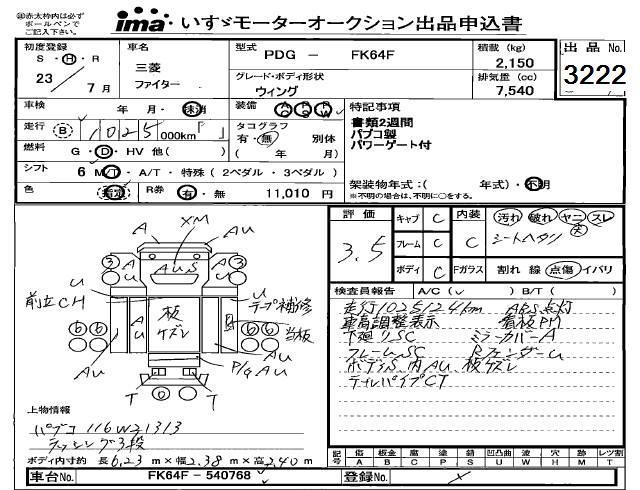 ※赤太枠内は必ず
ボールペンで
ご記入下さい。
ima いすゞモーターオークション出品申込書
初度登録 S・H・R 23年 7月
車名 三菱 ファイター
型式 PDG - FK64F
積載 (kg) 2,150
出品No. 3222
グレード・ボディ形状 ウィング
排気量 (cc) 7,540
車検 年 月・抹消
装備 AC PS PW
特記事項
書類2週間
パブコ製
パワーゲート付
走行 (B) 1025 000km「 」
タコグラフ 有・無 別体 ( 年 月)
燃料 G・D・HV 他( )
シフト 6 M/T・A/T・特殊 (2ペダル・3ペダル)
色 指定
R券 有・無 11,010 円
架装物年式:( 年式)・不明
※不明の場合は、不明に○をする。
評価 3.5
キャブ C
フレーム C
ボディ C
内装 C
汚れ 破れ ヤニ スレ 大
シートヘタリ
Fガラス 割れ 線 点傷 イバリ
検査員報告 A/C(✓) B/T( )
走行1025124km ABS点灯
車高調整表示 看板PM
下廻りSC ミラーカバーA
フレームSC RフェンダーU
ボディS 内AU、板ケズレ
テールパイプCT
A XM AU
3 AU AUS AU 3
U U
前立CH テープ補修
板ケズレ
AU
6 6 6 6 当板
AU AU
P/G AU
T T
上物情報
パブコ 116W21313
ラッシング3段
ボディ内寸約 長6.23m×幅2.38m×高2.40m
記号 傷 板金 腐 塗 錆 凹凸曲 波 穴 跡 レツ割
A B C P S U W H M T
車台No. FK64F-540768
登録No.